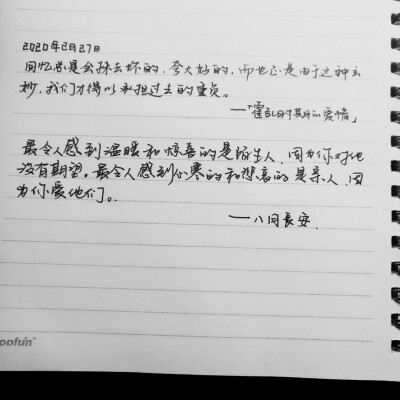 2020年2月27日
回忆总是会抹去坏的,夸大好的,而也正是由于这种玄
妙,我们才得以承担过去的重负。
—「霍乱时期的爱情」
最令人感到温暖和惊喜的是陌生人,因为你对他
没有期望。最令人感到心寒的和悲哀的是亲人,因
为你爱他们。
——八月长安
oofun